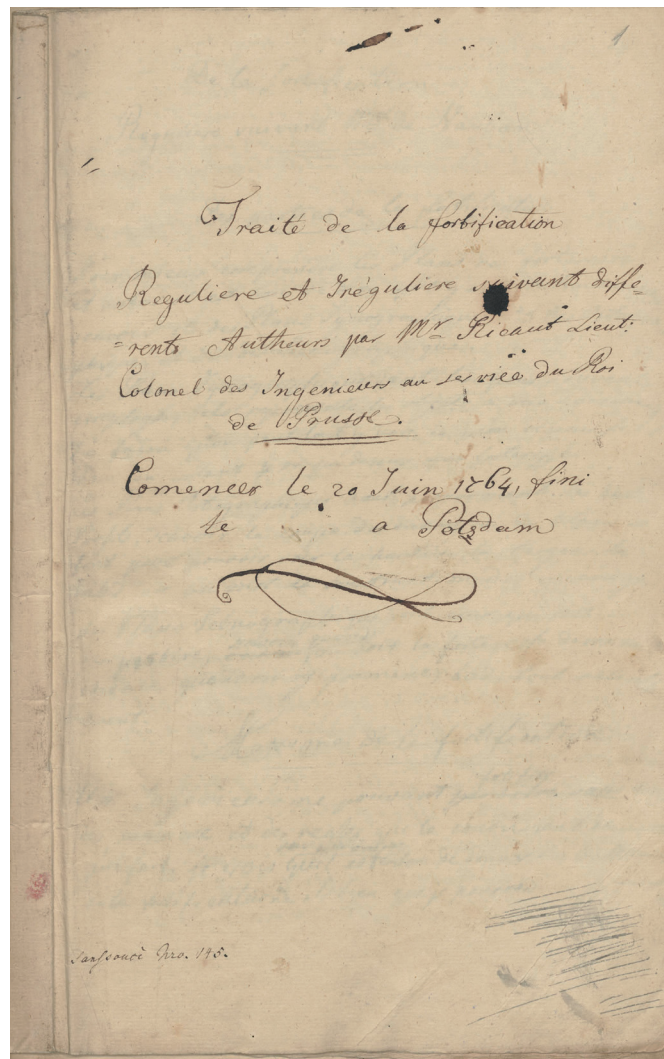 1
Traité de la fortification
Reguliere et Iréguliere suivant diffe=
=rents Autheurs par Mr Ricaut Lieut:
Colonel des Ingenieurs au service du Roi
de Prusse.
Comencer le 20 Juin 1764, fini
le a Potsdam
Sanssouci Nro. 145.